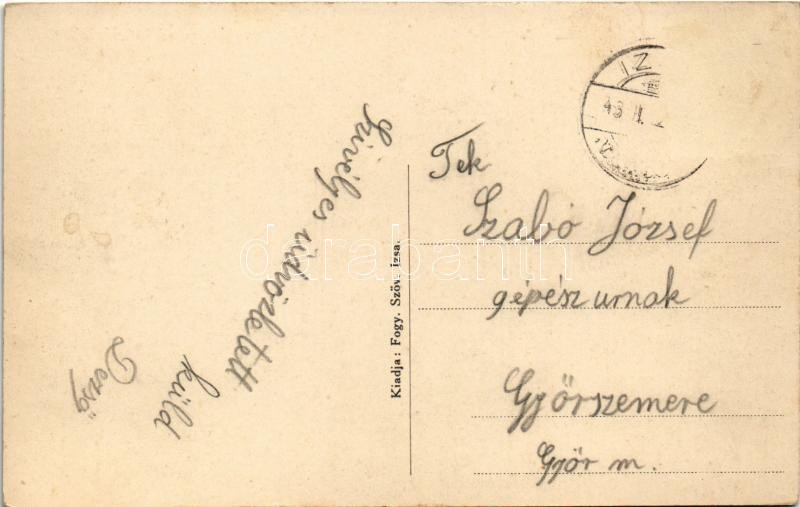 Szívélyes üdvözletett
küld
Dezső
Kiadja: Fogy. Szöv. Izsa.
IZ
43 II. 2
Tek
Szabó József
gépész urnak
Győrszemere
Győr m.
darabanth